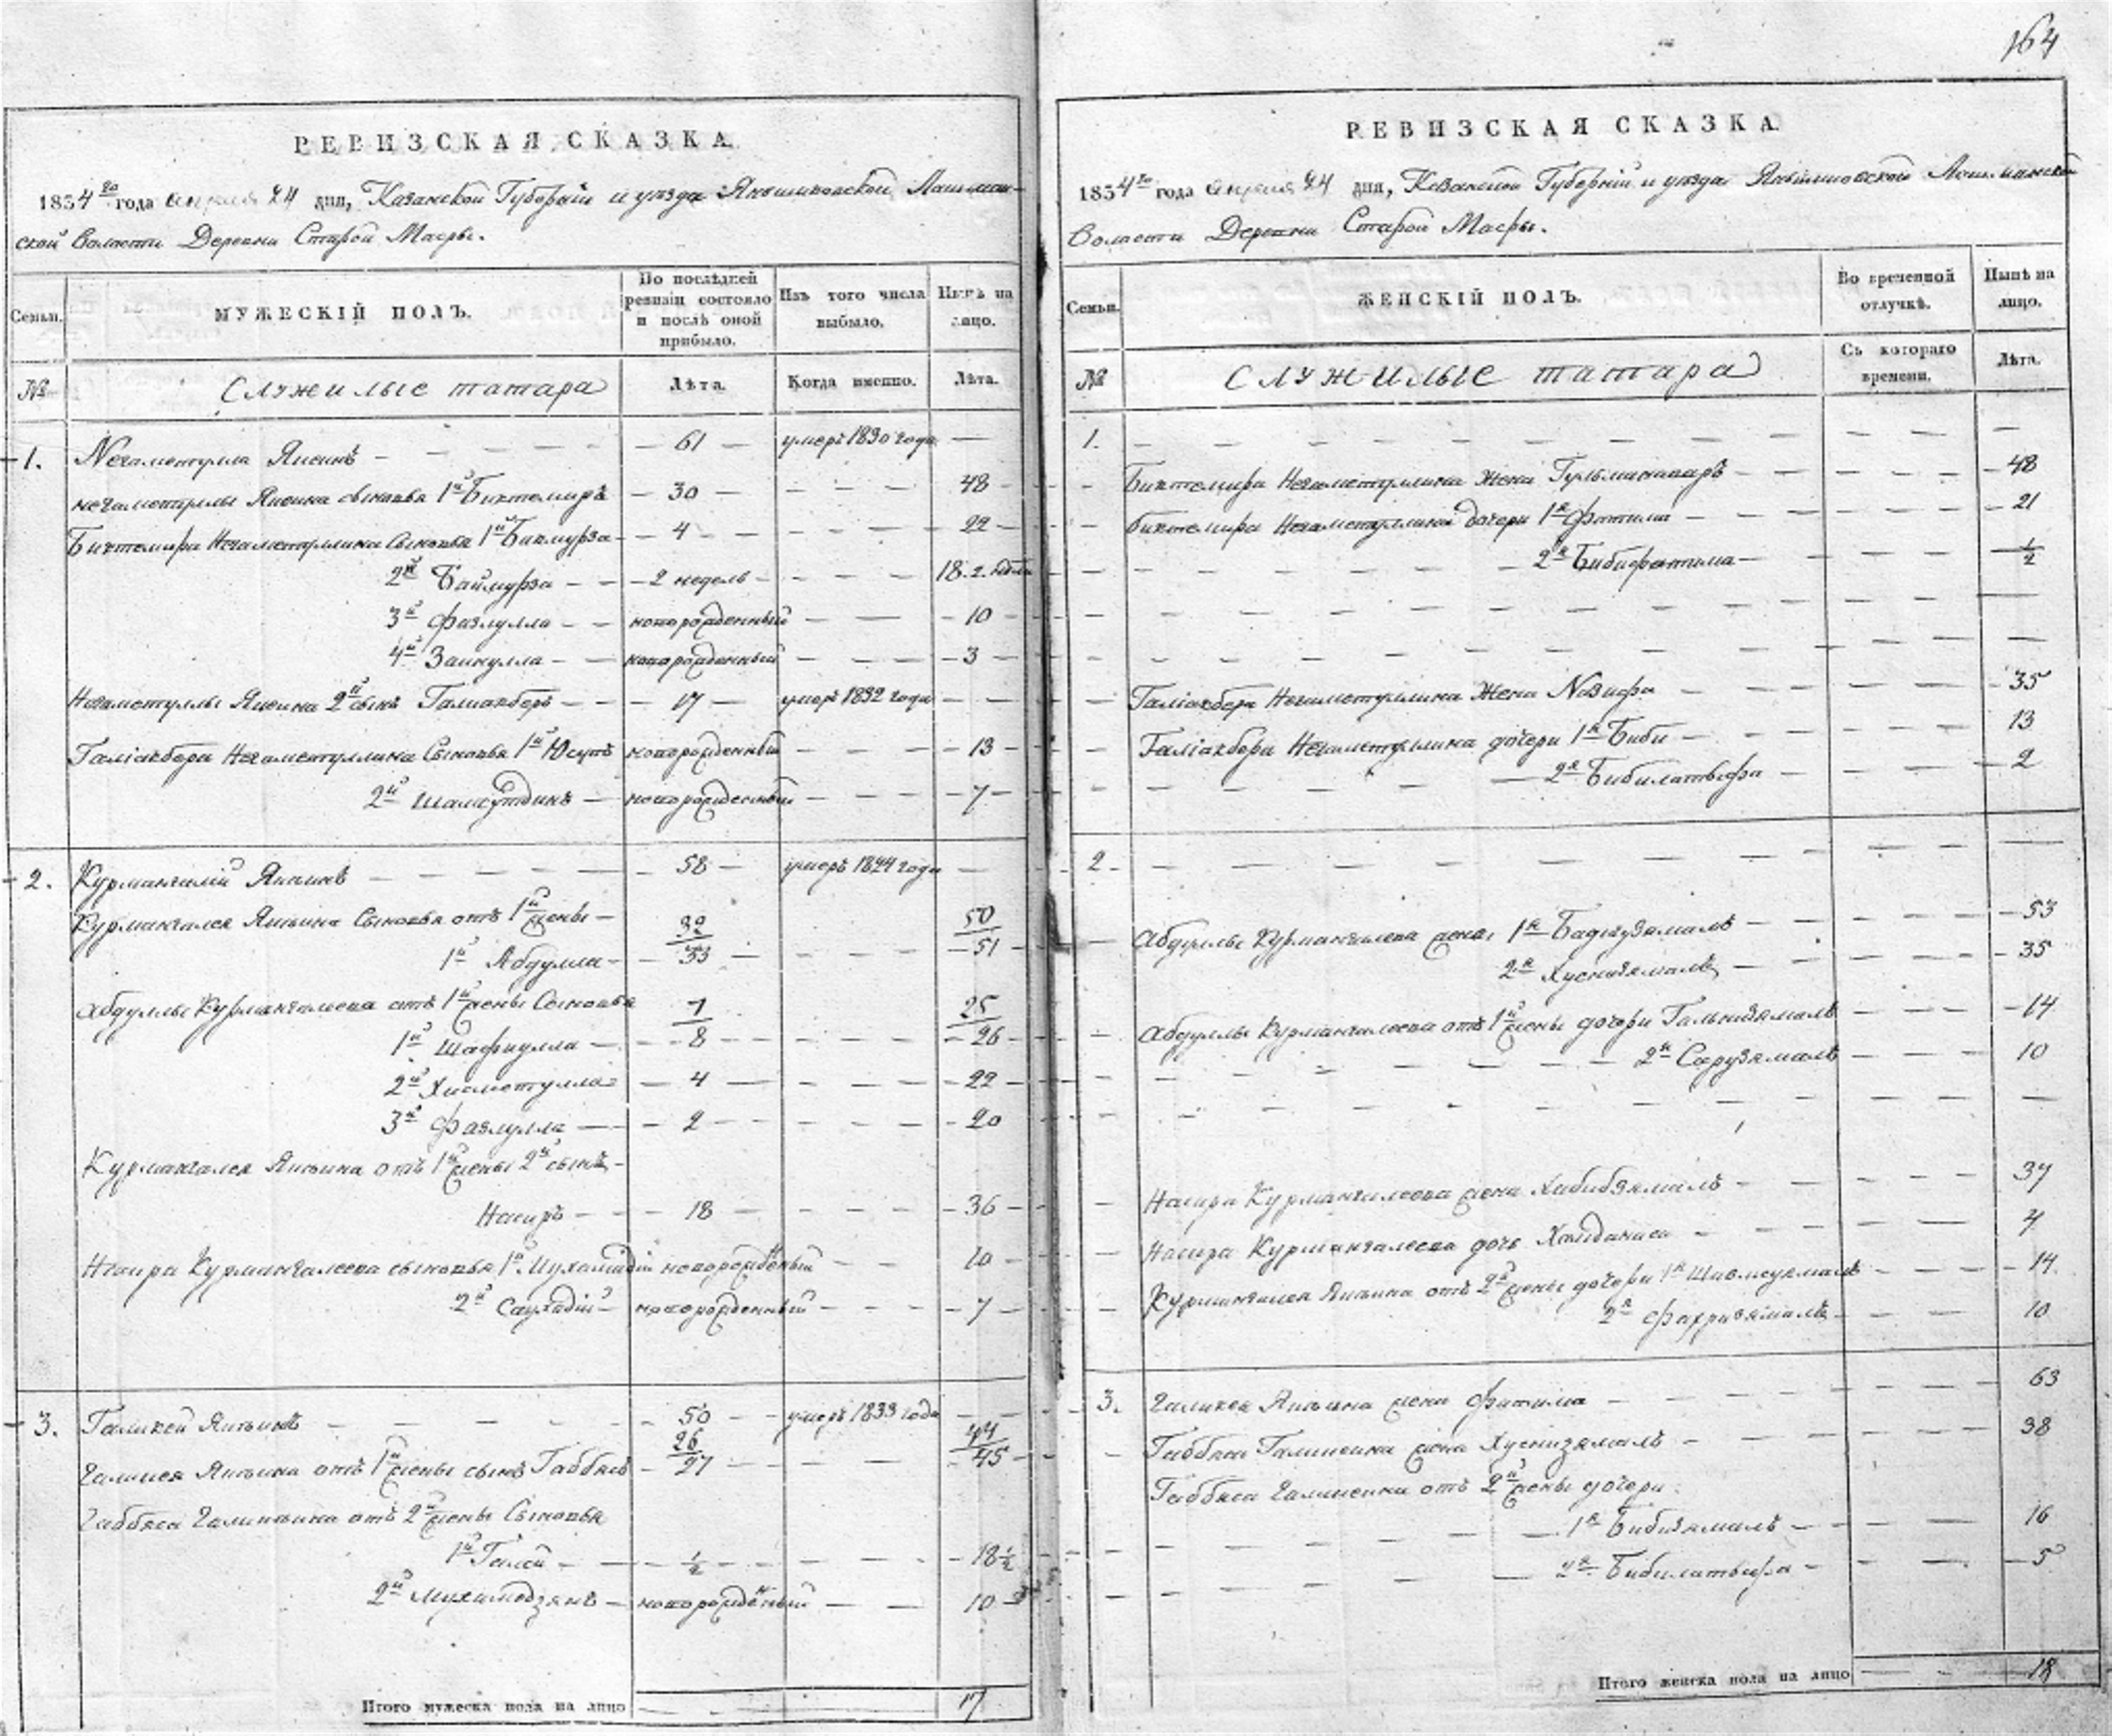 164
РЕВИЗСКАЯ СКАЗКА
1834го года апреля 24 дня, Казанской Губернiи и уезда Лашман-
ской Волости Деревни Старой Масры.
Семьи. МУЖЕСКІЙ ПОЛЪ. По послѣдней ревизіи состояло и послѣ оной прибыло. Изъ того числа выбыло. Нынѣ на лицо.
№ Служилые татара Лѣта. Когда именно. Лѣта.
1. Негаметулла Янсинъ 61 умеръ 1830 года
Негаметуллы Янсина сыновья 1й Биктемиръ 30 48
Биктемира Негаметуллина Сыновья 1й Бикмурза 4 22
2й Баймурза 2 недель 18. 2. недели
3й Фазлулла новорожденный 10
4й Заинулла новорожденный 3
Негаметуллы Янсина 2й сынъ Галиакберъ 17 умеръ 1832 года
Галіакбера Негаметуллина Сыновья 1й Юсупъ новорожденный 13
2й Шамсутдинъ новорожденный 7
2. Курмангалій 58 умеръ 1824 года
Курмангалея Сыновья отъ 1й жены
1й Абдулла 32/33 50/51
Абдуллы Курмангалеева отъ 1й жены Сыновья
1й Шафиулла 7/8 25/26
2й Хисметулла 4 22
3й Фазлулла 2 20
Курмангалея отъ 1й жены 2й сынъ
Насиръ 18 36
Насира Курмангалеева сыновья 1й новорожденный 10
2й новорожденный 7
3. Галикей 50 умеръ 1833 года
отъ 1й жены сынъ Габбясъ 26/27 44/45
Габбяса отъ 2й жены Сыновья
1й Галей ½ 18½
2й Мухамедзянъ новорожденный 10
Итого мужеска пола на лицо 17
РЕВИЗСКАЯ СКАЗКА
1834го года апреля 24 дня, Казанской Губернiи и уезда
Волости Деревни Старой Масры.
Семьи. ЖЕНСКІЙ ПОЛЪ. Во временной отлучкѣ. Нынѣ на лицо.
№ Служилые татара Съ котораго времени. Лѣта.
1.
Биктемира Негаметуллина Жена 48
Биктемира Негаметуллина дочери 1я Фатима 21
2я Бибифатима ½
Галіакбера Негаметуллина Жена Назифа 35
Галіакбера Негаметуллина дочери 1я Биби 13
2я Бибилатыфа 2
2.
Абдуллы Курмангалеева жена 1я 53
2я Хуснизямалъ 35
Абдуллы Курмангалеева отъ 1й жены дочери 14
2я Сарузямалъ 10
Насира Курмангалеева жена Хабибзямалъ 37
Насира Курмангалеева дочь 4
Курмангалея отъ 2й жены дочери 1я 14
2я Фахризямалъ 10
3. жена Фатима 63
Габбяса жена Хуснизямалъ 38
Габбяса отъ 2й жены дочери
1я Бибизямалъ 16
2я Бибилатыфа 5
Итого женска пола на лицо 18